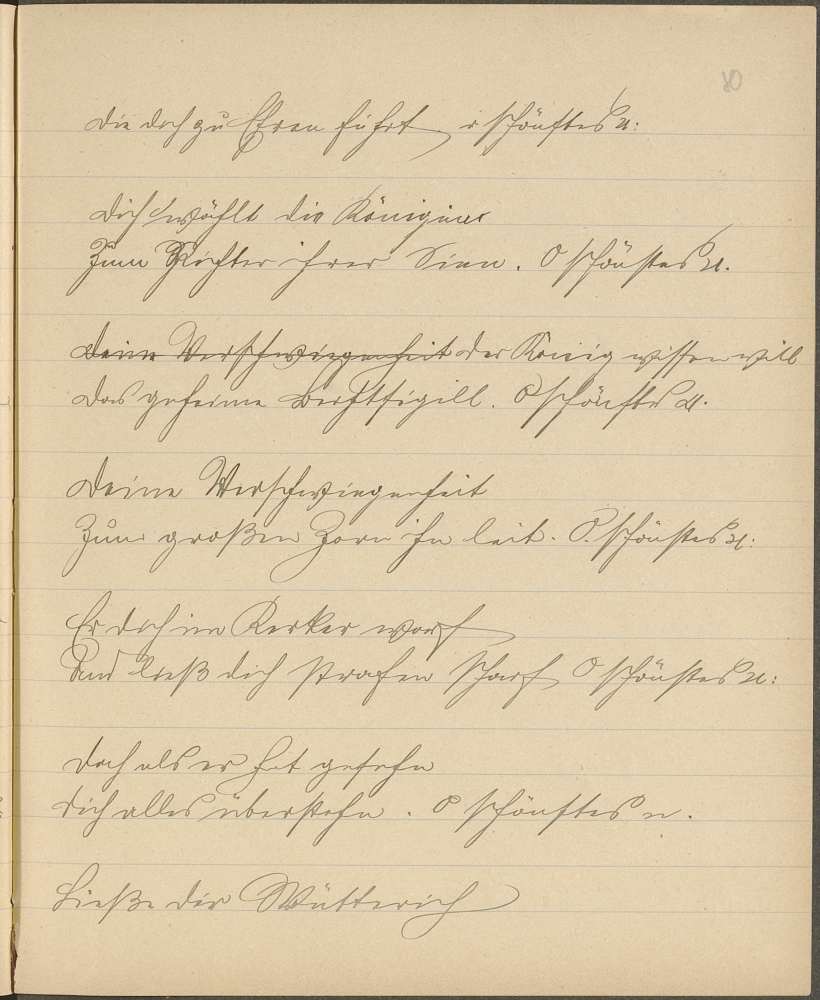 80
die dich zu Ehren führt, o schönstes u:
Dich erwählt die Königinn
Zum Richter ihrer Sinn. O schönstes u.
Deine Verschwiegenheit der König wissen will
das geheime Beichtsigill. O schönstes u.
Deine Verschwiegenheit
Zum großen Zorn ihn leit. O schönstes u:
Er dich im Kerker warf
Und ließ dich strafen scharf, O schönstes u:
doch als er hat gesehn
dich alles überstehn. O schönstes u.
Ließe der Wütterich